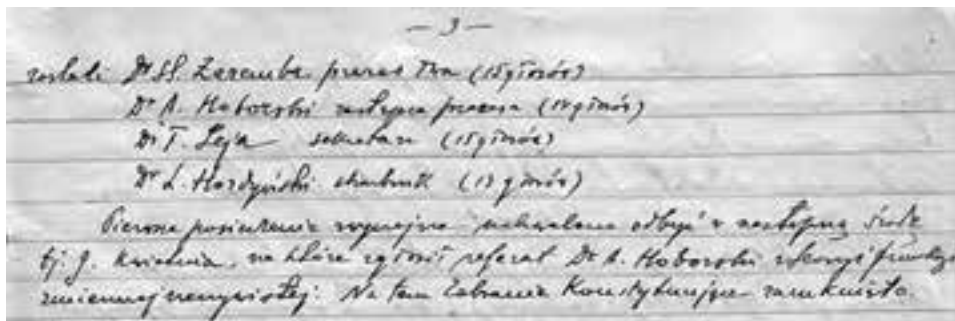 — 3 —
zostali Dr St. Zaremba prezes Twa (15 głosów)
Dr A. Hoborski zastępca prezesa (14 głosów)
Dr F. Leja sekretarz (15 głosów)
Dr L. Hordyński skarbnik (13 głosów)
Pierwsze posiedzenie uchwalono odbyć w następną środę
tj. 9. kwietnia, na które zgłosił referat Dr A. Hoborski
zmiennej rzeczywistej. Na tem Zebranie Konstytuujące zamknięto.